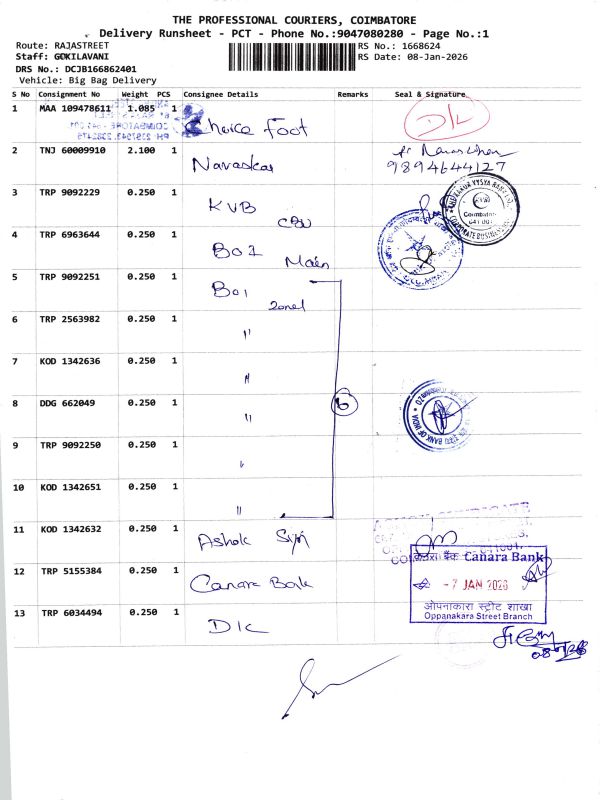 THE PROFESSIONAL COURIERS, COIMBATORE
Delivery Runsheet - PCT - Phone No.:9047080280 - Page No.:1
Route: RAJASTREET
RS No.: 1668624
Staff: GOKILAVANI
RS Date: 08-Jan-2026
DRS No.: DCJB166862401
Vehicle: Big Bag Delivery
S No Consignment No Weight PCS Consignee Details Remarks Seal & Signature
1 MAA 109478611 1.085 1 Choice Foot DK
2 TNJ 60009910 2.100 1 Navaskar
9894644127
3 TRP 9092229 0.250 1 KVB CBU
4 TRP 6963644 0.250 1 BOI Main
5 TRP 9092251 0.250 1 BOI zonel
6 TRP 2563982 0.250 1 "
7 KOD 1342636 0.250 1 "
8 DDG 662049 0.250 1 " 6
9 TRP 9092250 0.250 1 "
10 KOD 1342651 0.250 1 "
11 KOD 1342632 0.250 1 Ashok
12 TRP 5155384 0.250 1 Canara Bank
केनरा बैंक Canara Bank
-7 JAN 2026
ओपनाकारा स्ट्रीट शाखा
Oppanakara Street Branch
13 TRP 6034494 0.250 1 DK